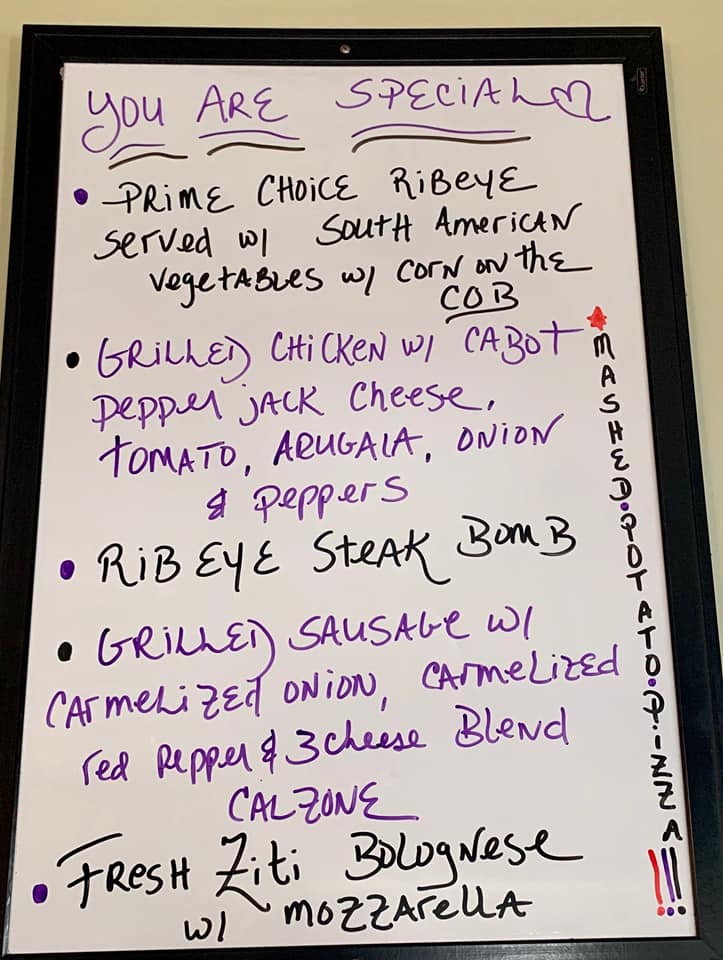 YOU ARE SPECIAL
• PRIME CHOICE RIBEYE
SERVED W/ SOUTH AMERICAN
VEGETABLES W/ CORN ON THE
COB
• GRILLED CHICKEN W/ CABOT
PEPPER JACK CHEESE,
TOMATO, ARUGALA, ONION
& PEPPERS
• RIB EYE STEAK BOMB
• GRILLED SAUSAGE W/
CARMELIZED ONION, CARMELIZED
red PEPPER & 3 cheese Blend
CALZONE
• FRESH Ziti BOLOGNESE
W/ MOZZARELLA
MASHED•POTATO•PIZZA!!!